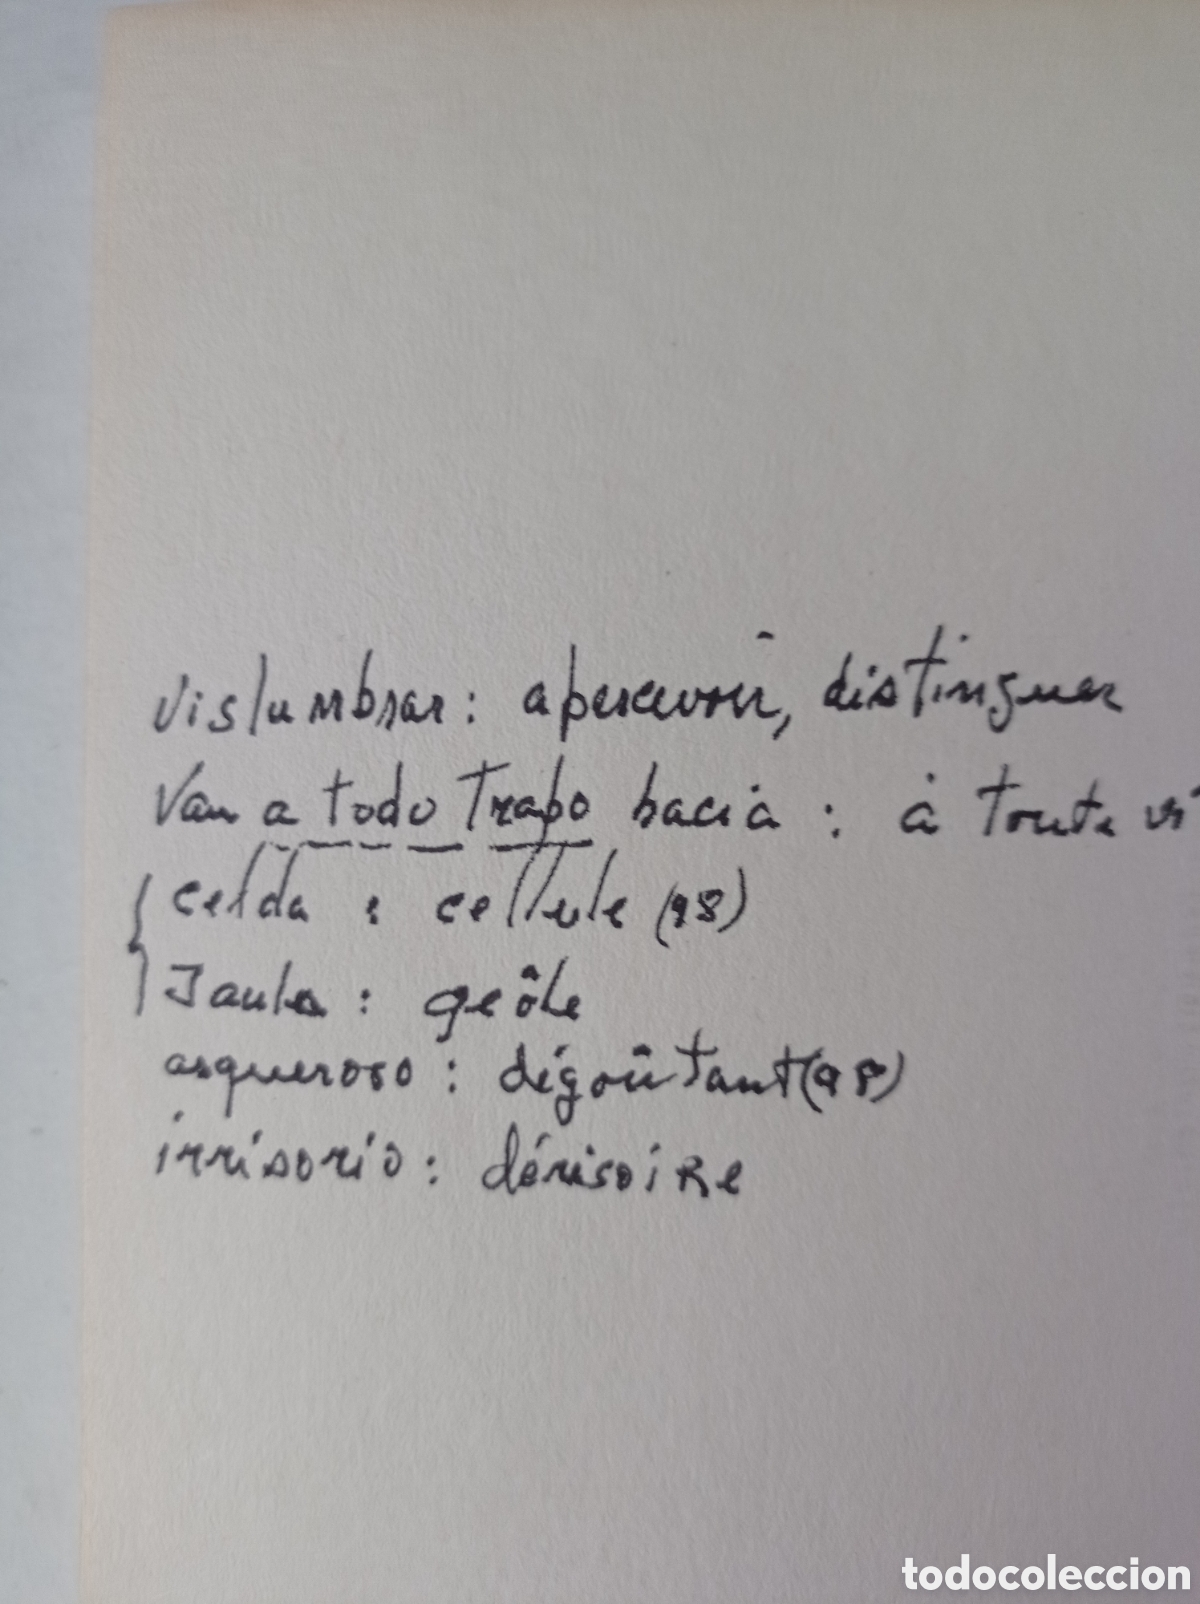 vislumbrar: apercevoir, distinguer
Van a todo Trapo hacia : à toute vi
celda : cellule (98)
Jaula : geôle
asqueroso : dégoûtant (98)
irrisorio : dérisoire
todocoleccion